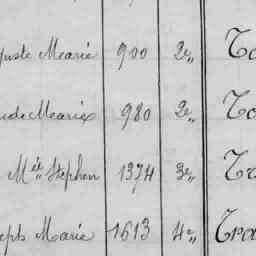 guste Marie 900 2e,, To
ude Marie 980 2e,,  To
Mée Stephen 1374 3e,, Tr
eph Marie 1613 4e,, Tra